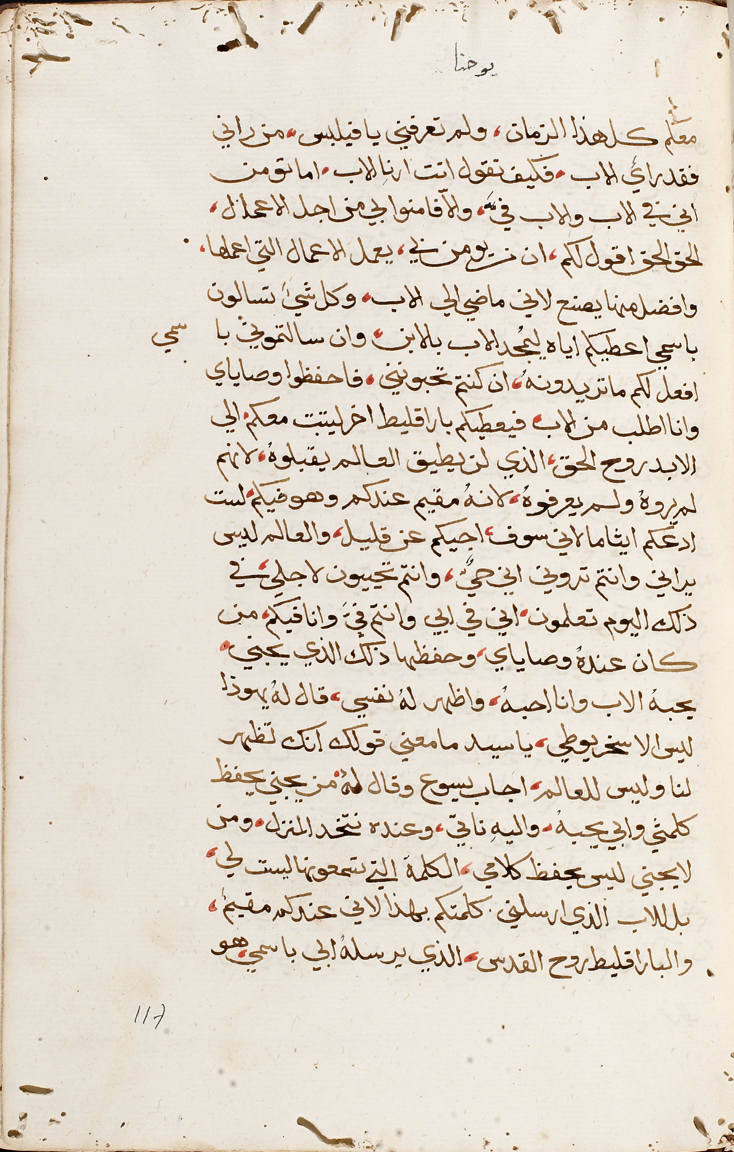 يوحنا
معكم كل هذا الزمان، ولم تعرفني يا فيلبس، من راني
فقد راي الاب، فكيف تقول انت ارنا الاب، اما تومن
اني في الاب والاب فيَّ، والّا فامنوا بي من اجل الاعمال،
الحق الحق اقول لكم، ان من يومن بي، يعمل الاعمال التي اعملها،
وافضل منها يصنع لاني ماضي الي الاب، وكل شيٍ تسالون
باسمي اعطيكم اياه ليمجد الاب بالابن، وان سالتموني با
سمي
افعل لكم ما تريدونهُ، ان كنتم تحبونني، فاحفظوا وصاياي
وانا اطلب من الاب فيعطيكم باراقليط اخر ليثبت معكم، الي
الابد روح الحق، الذي لن يطيق العالم يقبلوهُ، لانهم
لم يروهُ ولم يعرفوهُ، لانهُ مقيم عندكم وهو فيكم، لست
ادعكم ايتاما لاني سوف، اجيكم عن قليل، والعالم ليس
يراني وانتم تروني اني حيٌّ، وانتم تحييون لاجلي، في
ذلك اليوم تعلمون، اني في ابي وانتم فيَّ وانا فيكم، من
كان عندهُ وصاياي، وحفظها ذلك الذي يحبني،
يحبهُ الاب وانا احبهُ، واظهر لهُ نفسي، قال لهُ يهوذا
ليس الاسخريوطي، يا سيد ما معني قولك انك تظهر
لنا وليس للعالم، اجاب يسوع وقال لهُ، من يحبني يحفظ
كلمتي وابي يحبهُ، واليهِ ناتي، وعنده نتخد المنزل، ومن
لا يحبني ليس يحفظ كلامي، الكلمة التي تسمعونها ليست لي،
بل للاب الذي ارسلني، كلمتكم بهذا لاني عندكم مقيم،
والباراقليط روح القدس، الذي يرسلهُ ابي باسمي، هو
117